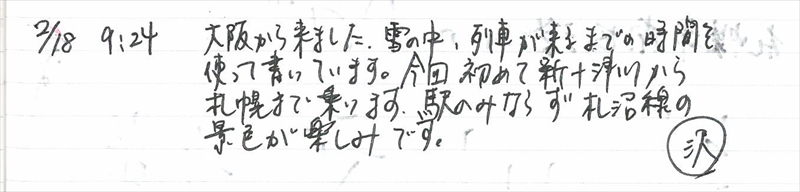 2/18 9:24 大阪から来ました。雪の中、列車が来るまでの時間を
使って書いています。今回初めて新十津川から
札幌まで乗ります。駅のみならず札沼線の
景色が楽しみです。
沢